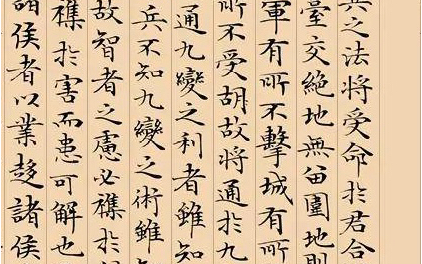 兵之法將受命於君合
臺交絕地無留圍地則
軍有所不擊城有所
所不受胡故將通於九
通九變之利者雖知
兵不知九變之術雖
故智者之慮必襍於
襍於害而患可解也
諸侯者以業趍諸侯